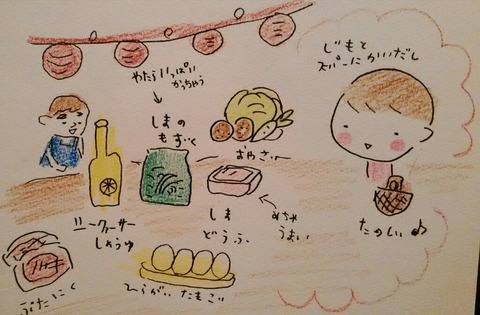 じもと
スーパーにかいだし
やたらいっぱい
かっちゃう
しまの
もずく
おやさいー
しま
どうふ
めちゃ
うまい
たのしい♪
シークワーサー
しょうゆ
ぶたにく
ひらがい たもごい